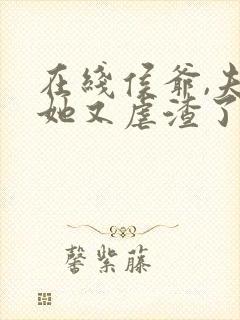 在线侯爷,夫
她又虐渣了
馨紫藤